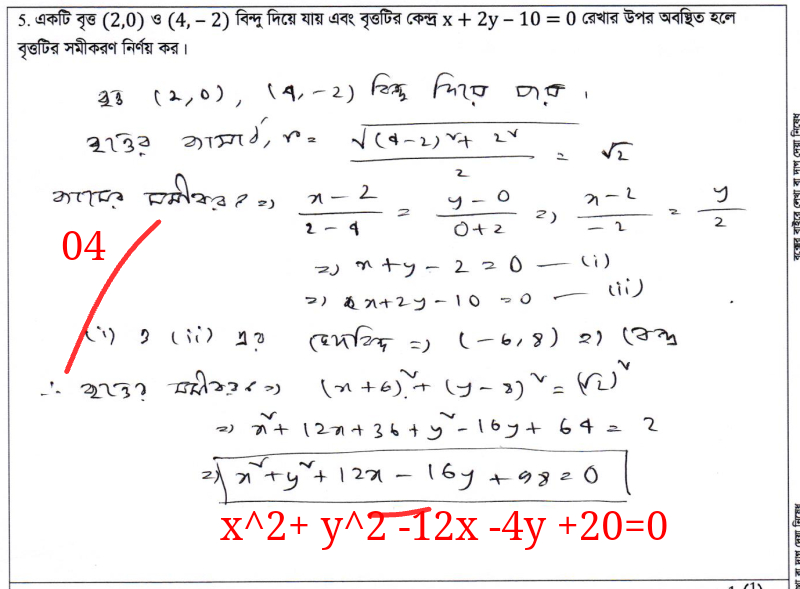 5. একটি বৃত্ত (2,0) ও (4, – 2) বিন্দু দিয়ে যায় এবং বৃত্তটির কেন্দ্র x + 2y – 10 = 0 রেখার উপর অবস্থিত হলে
বৃত্তটির সমীকরণ নির্ণয় কর।
বৃত্ত (2,0), (4, -2) বিন্দু দিয়ে যায়।
বৃত্তের ব্যাসার্ধ, r = √((4-2)² + 2²) / 2 = √2
ব্যাসের সমীকরণ => (x-2)/(2-4) = (y-0)/(0+2) => (x-2)/(-2) = y/2
04
=> x+y-2=0 — (i)
=> x+2y-10=0 — (ii)
(i) ও (ii) এর ছেদবিন্দু => (-6,8) => কেন্দ্র
∴ বৃত্তের সমীকরণ => (x+6)² + (y-8)² = (√2)²
=> x²+12x+36+y²-16y+64=2
=> x²+y²+12x-16y+98=0
x^2+ y^2 -12x -4y +20=0